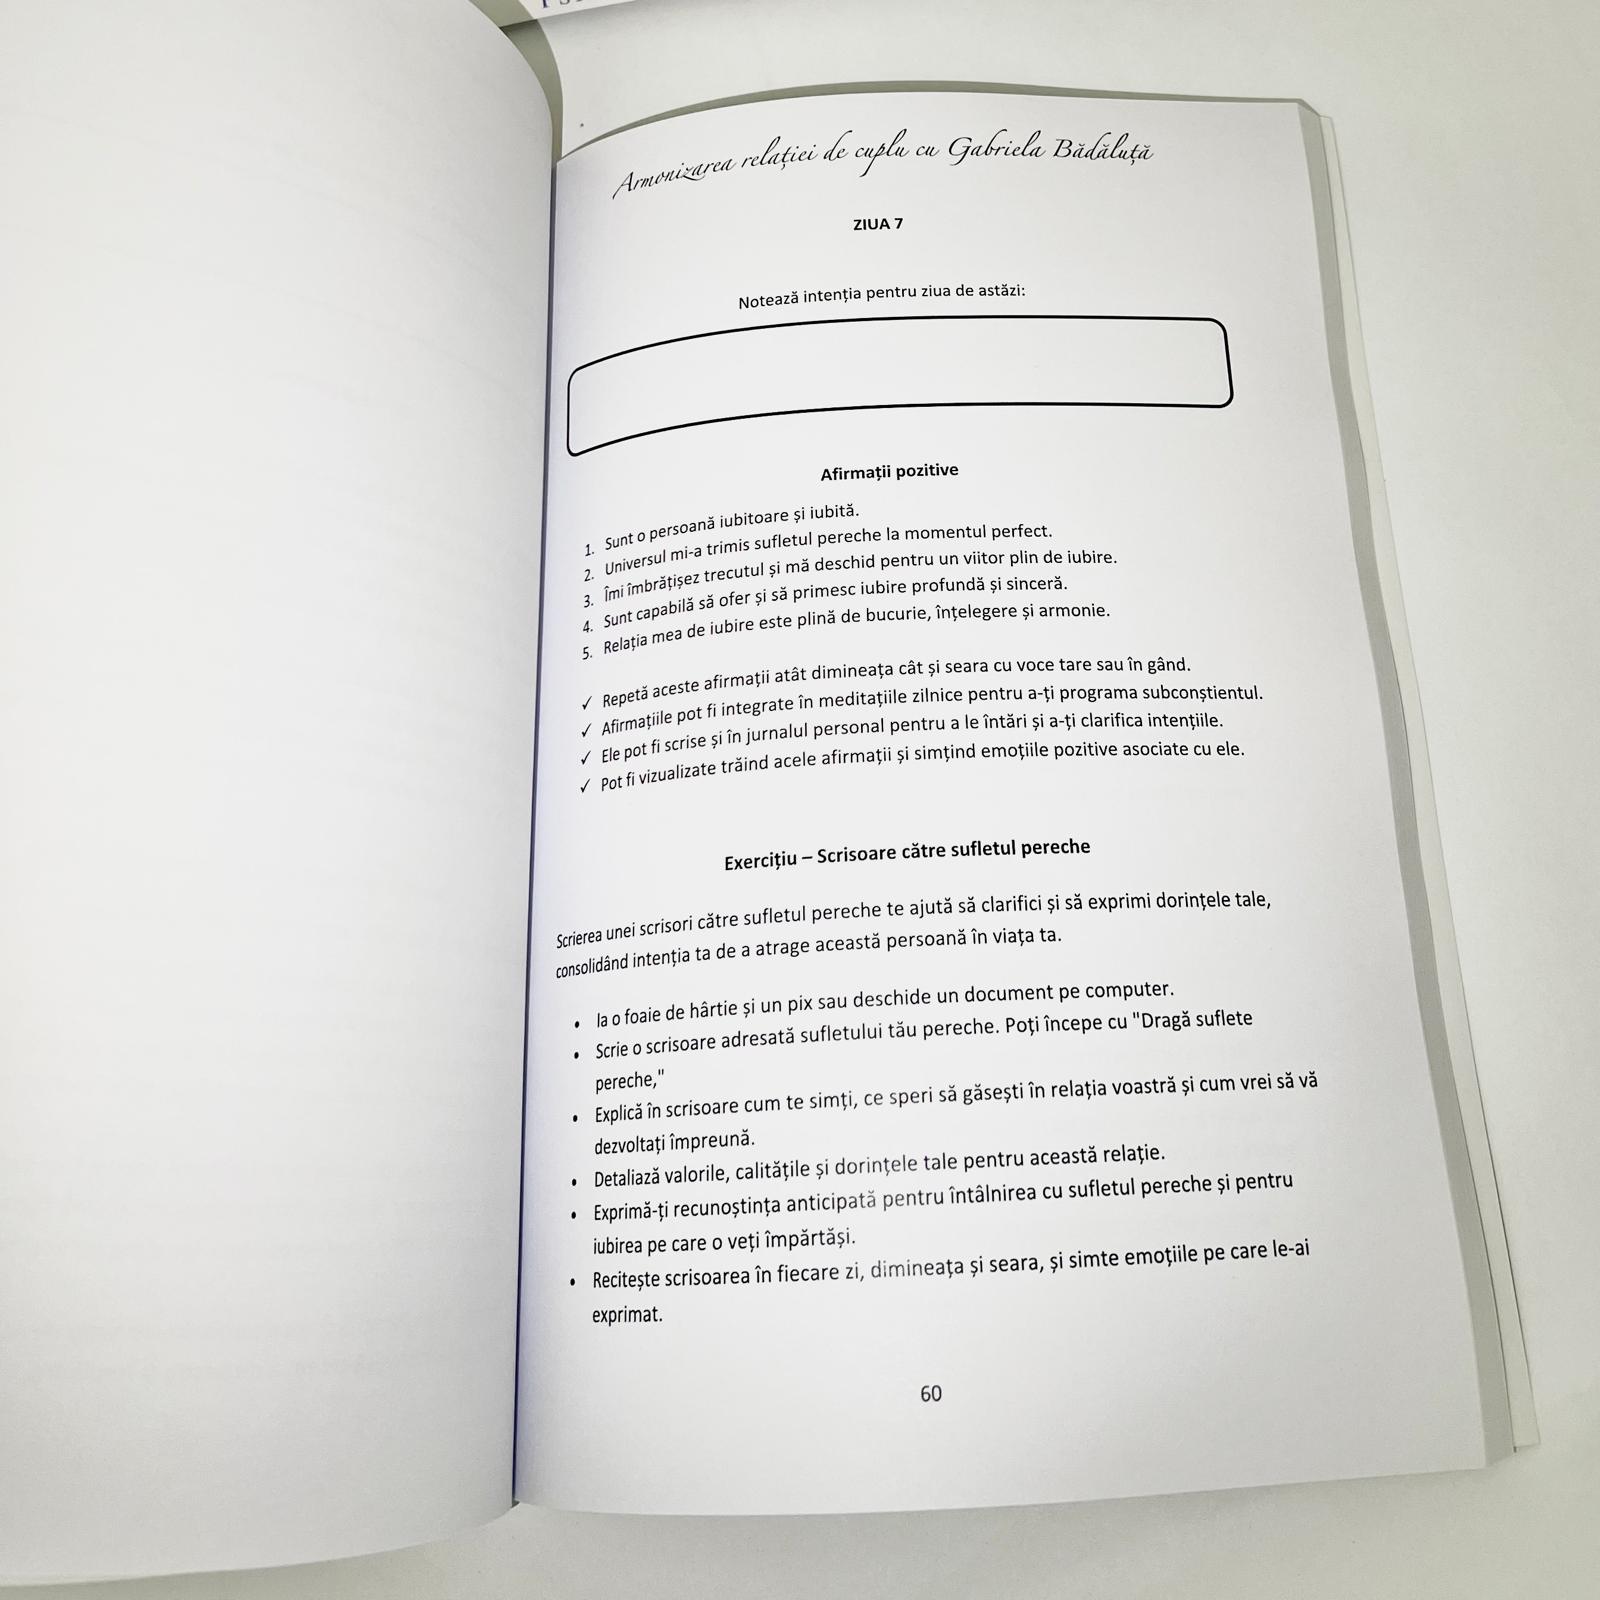 Armonizarea relației de cuplu cu Gabriela Bădăluță
ZIUA 7
Notează intenția pentru ziua de astăzi:
Afirmații pozitive
1. Sunt o persoană iubitoare și iubită.
2. Universul mi-a trimis sufletul pereche la momentul perfect.
3. Îmi îmbrățișez trecutul și mă deschid pentru un viitor plin de iubire.
4. Sunt capabilă să ofer și să primesc iubire profundă și sinceră.
5. Relația mea de iubire este plină de bucurie, înțelegere și armonie.
✓ Repetă aceste afirmații atât dimineața cât și seara cu voce tare sau în gând.
✓ Afirmațiile pot fi integrate în meditațiile zilnice pentru a-ți programa subconștientul.
✓ Ele pot fi scrise și în jurnalul personal pentru a le întări și a-ți clarifica intențiile.
✓ Pot fi vizualizate trăind acele afirmații și simțind emoțiile pozitive asociate cu ele.
Exercițiu – Scrisoare către sufletul pereche
Scrierea unei scrisori către sufletul pereche te ajută să clarifici și să exprimi dorințele tale,
consolidând intenția ta de a atrage această persoană în viața ta.
• Ia o foaie de hârtie și un pix sau deschide un document pe computer.
• Scrie o scrisoare adresată sufletului tău pereche. Poți începe cu "Dragă suflete
pereche,"
• Explică în scrisoare cum te simți, ce speri să găsești în relația voastră și cum vrei să vă
dezvoltați împreună.
• Detaliază valorile, calitățile și dorințele tale pentru această relație.
• Exprimă-ți recunoștința anticipată pentru întâlnirea cu sufletul pereche și pentru
iubirea pe care o veți împărtăși.
• Recitește scrisoarea în fiecare zi, dimineața și seara, și simte emoțiile pe care le-ai
exprimat.
60